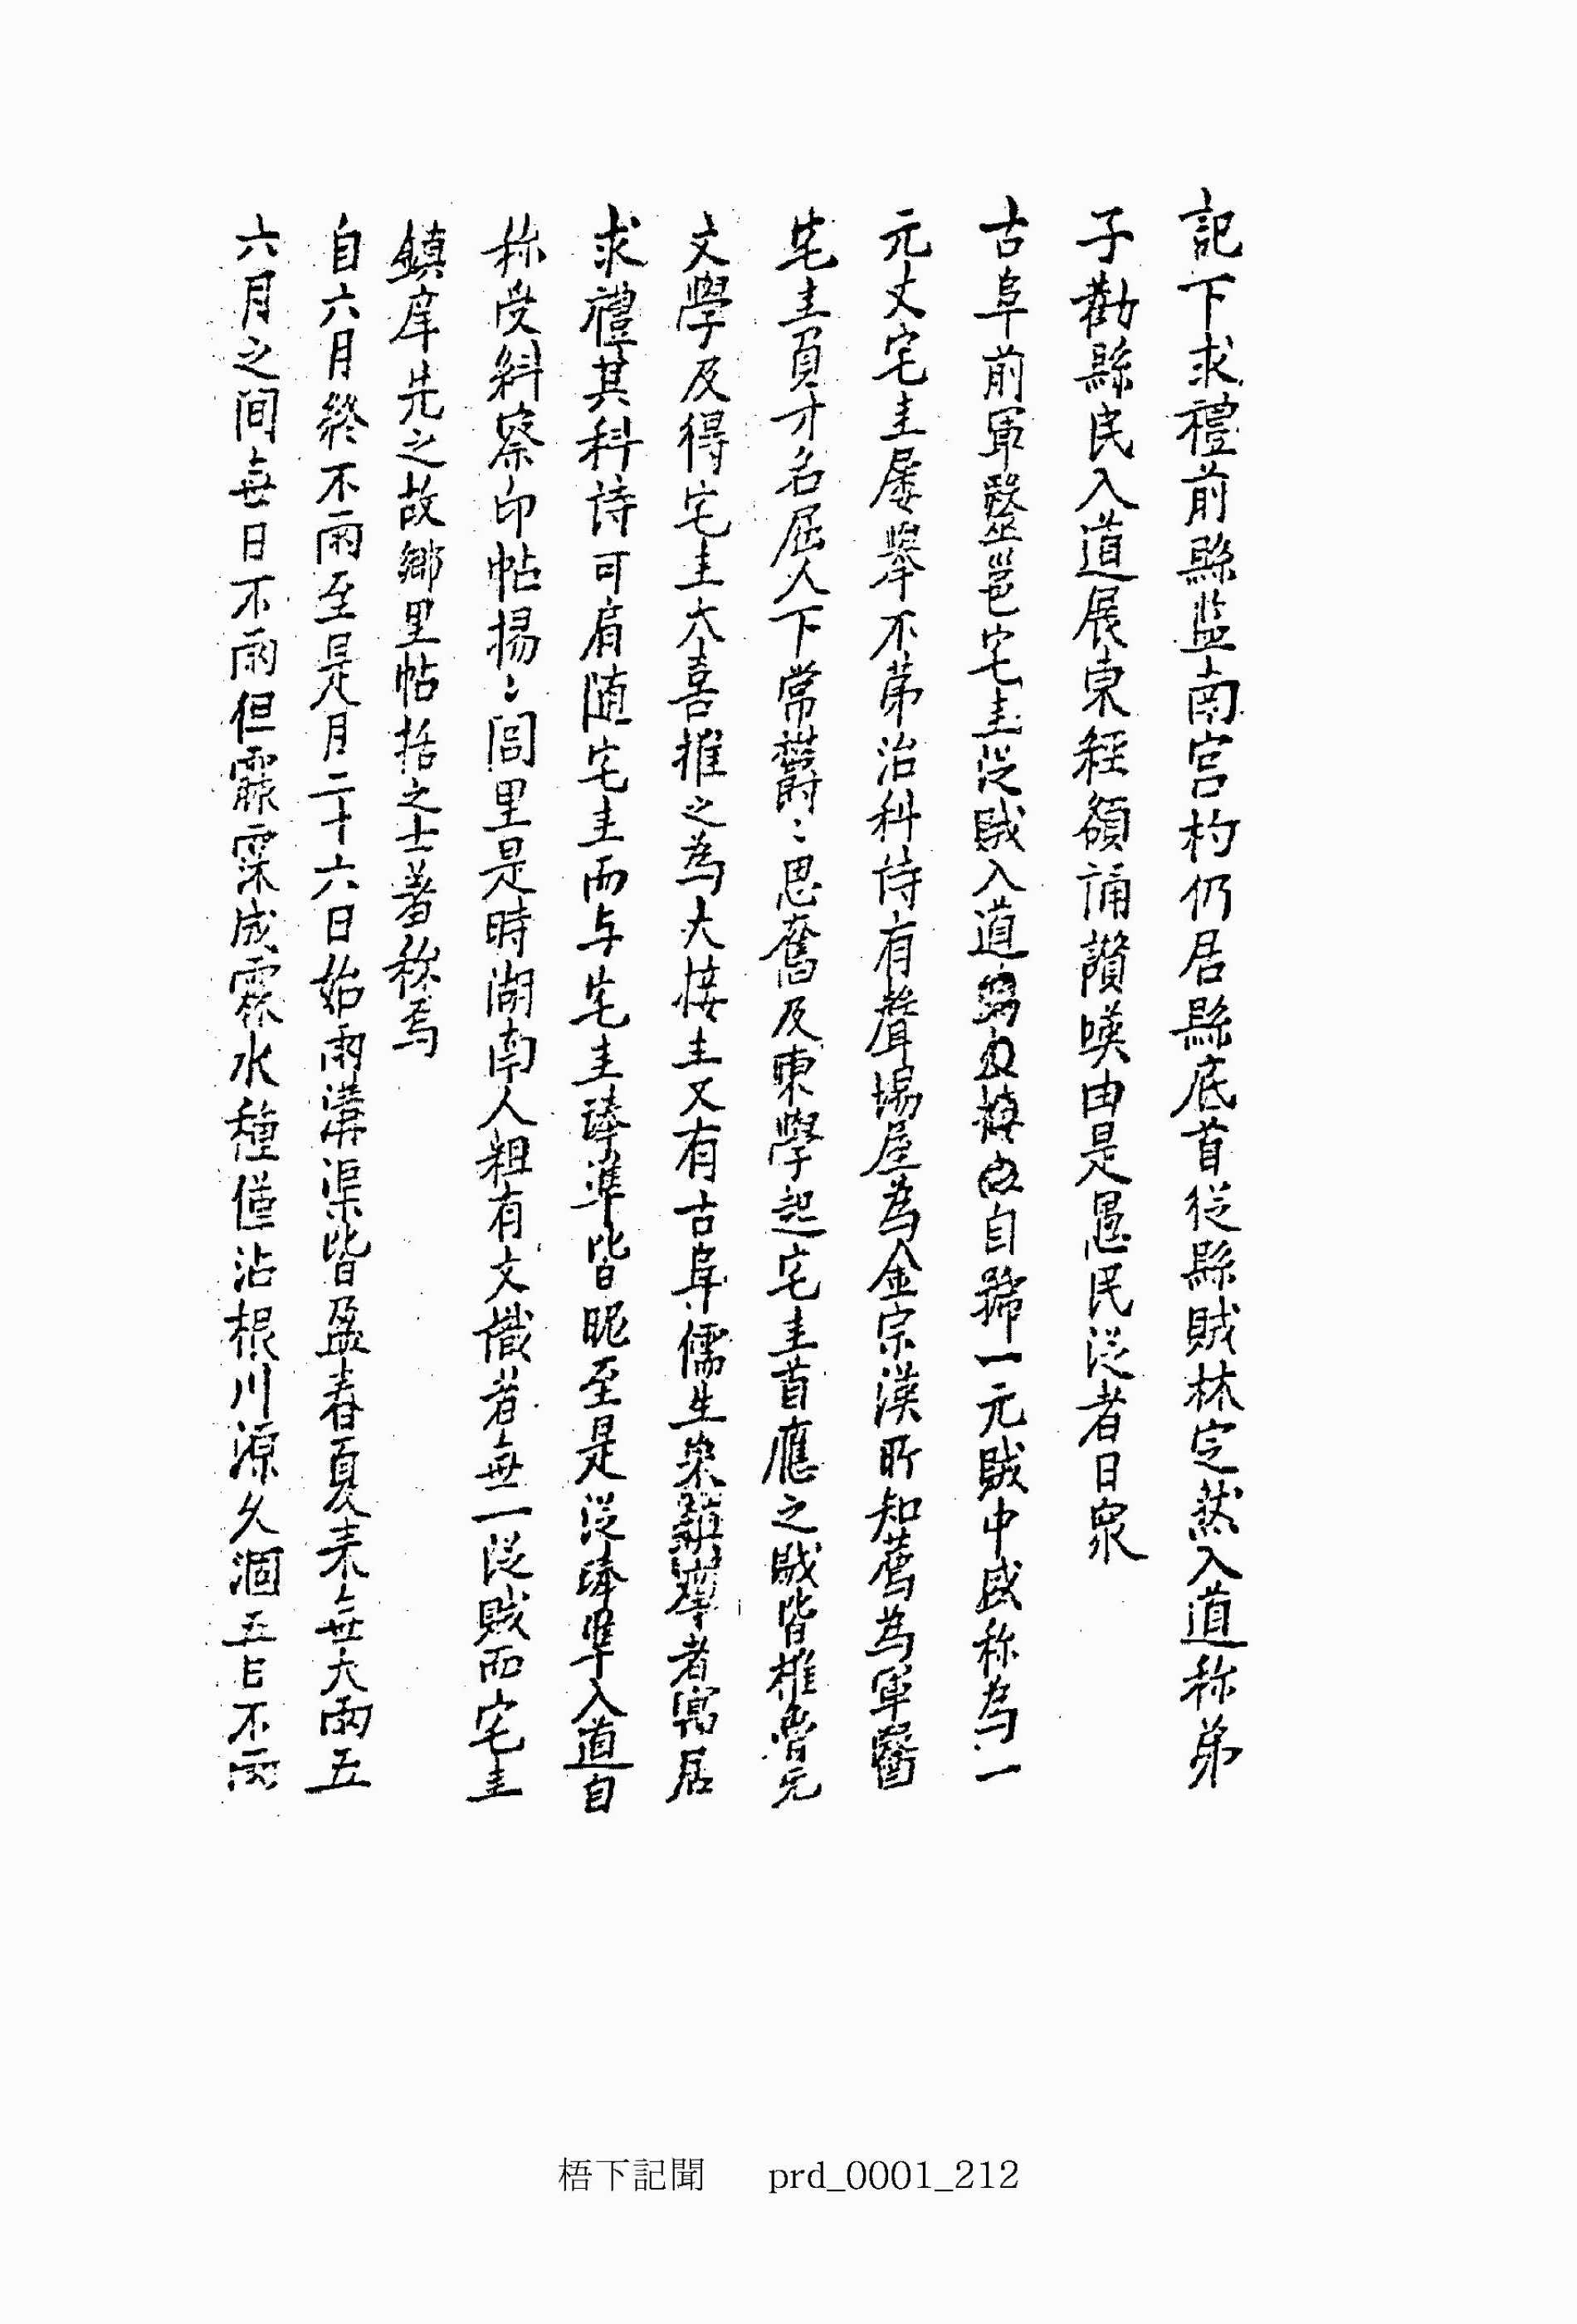 記下求禮前縣監南宮杓仍居縣底首從縣賊林定然入道称弟
子勸縣民入道展東経額誦讃嘆由是愚民從者日衆
古阜前軍壑邕宅圭從賊入道自號一元賊中盛称為一
元丈宅圭屡擧不弟治科詩有聲場屋為金宗漢所知薦為軍壑
宅圭負才名屈人下常欝〻思奮及東學起宅圭首應之賊皆推魯元
文學及得宅圭大喜推之為大接主又有古阜儒生宋鎮庠者寓居
求禮其科詩可肩随宅圭而与宅圭琫準皆昵至是從琫準入道自
称受糾察印帖揚〻閭里是時湖南人粗有文識者無一從賊而宅圭
鎮庠先之故鄉里帖括之士著称焉
自六月終不雨至是月二十六日始雨溝渠皆盈春夏来無大雨五
六月之间無日不雨但霢霂成霖水種僅沾根川源久涸五日不雨
梧下記聞 prd_0001_212